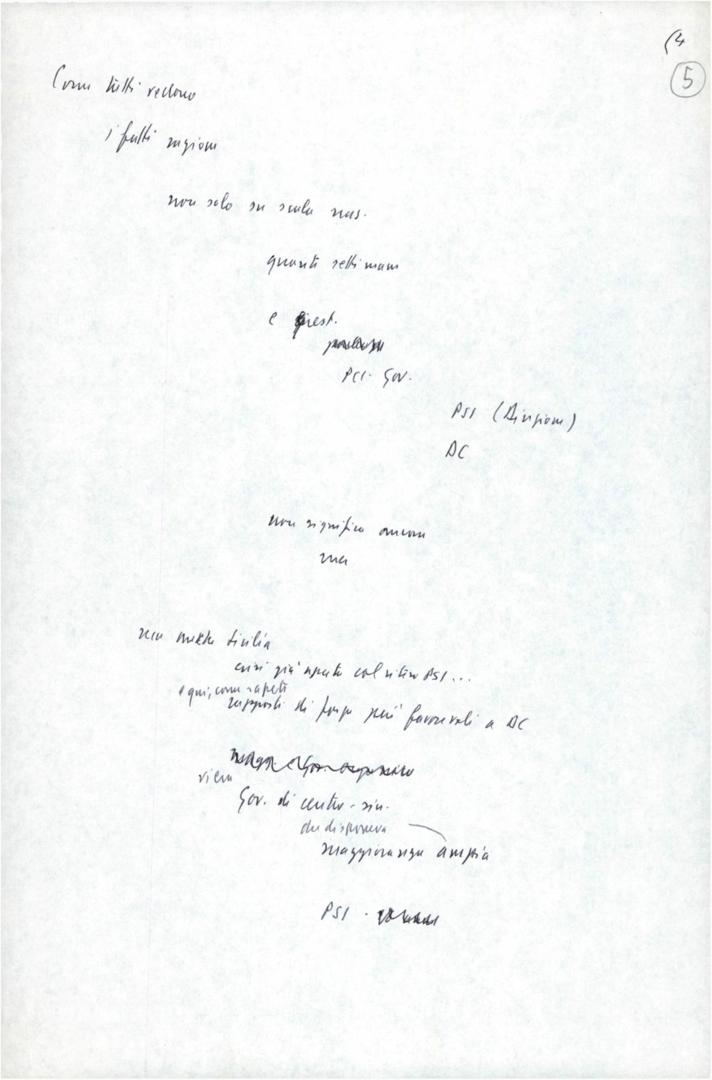 (4
5
Come tutti vedono
i fatti
non solo su scala naz.
questi settimane
e
PCI - Gov.
PSI (Divisione)
DC
non significa ancora
ma
ma anche Sicilia
crisi già aperta col ritiro PSI...
e qui, come sapete
rapporti di forza più favorevoli a DC
viene
Gov. di centro-sin.
che disponeva
maggioranza ampia
PSI -